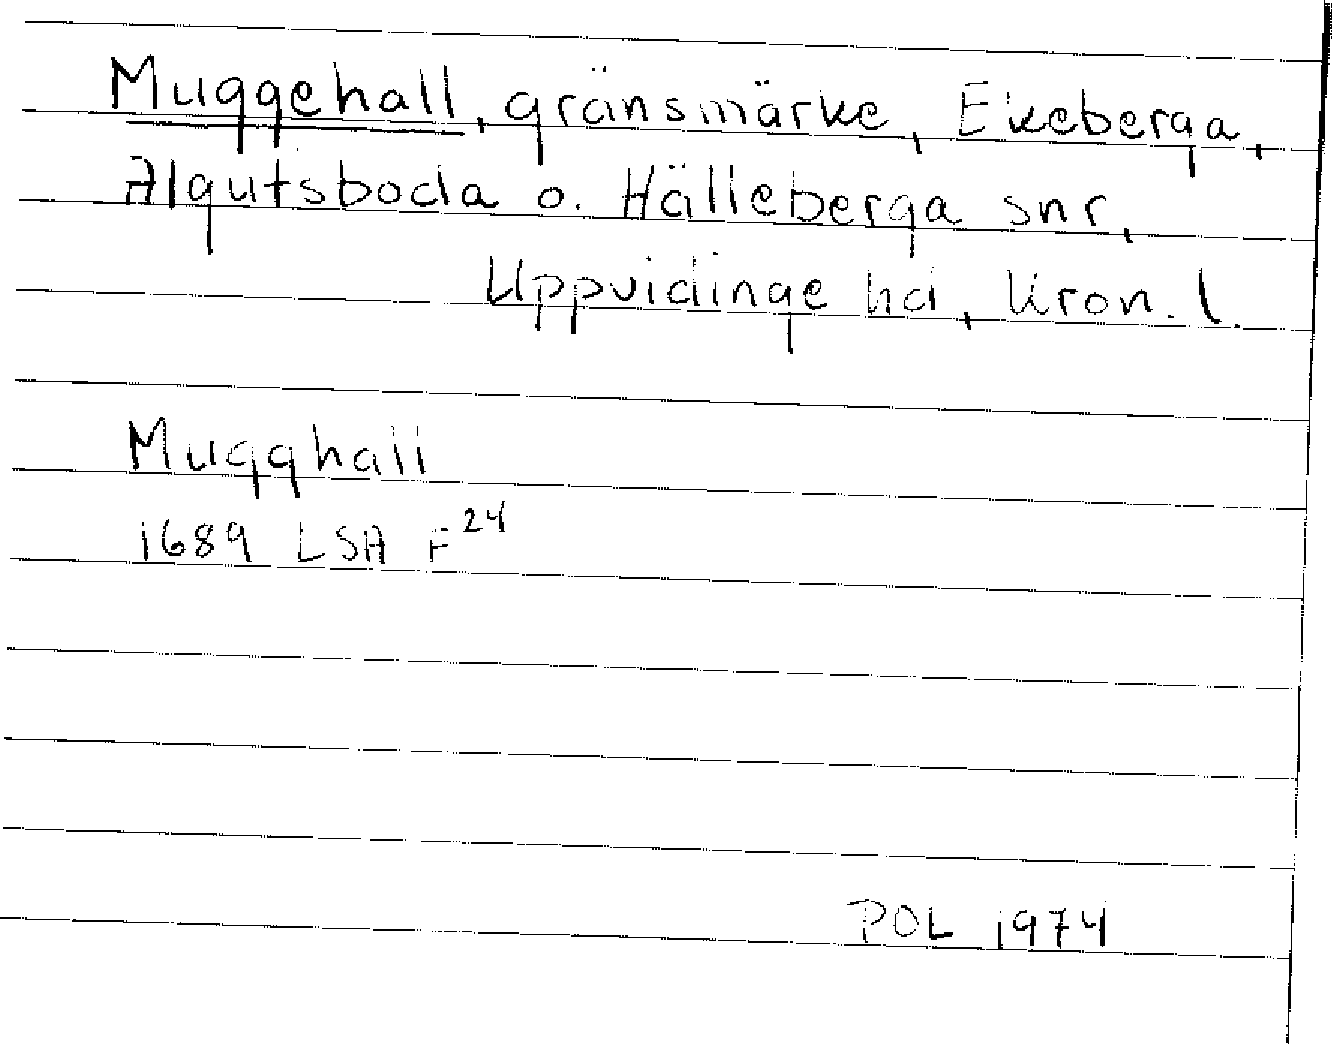 Muggehall, gränsmärke, Ekeberga,
Algutsboda o. Hälleberga snr,
Uppvidinge hd, Kron. l.
Mugghall
1689 LSA F24
POL 1974